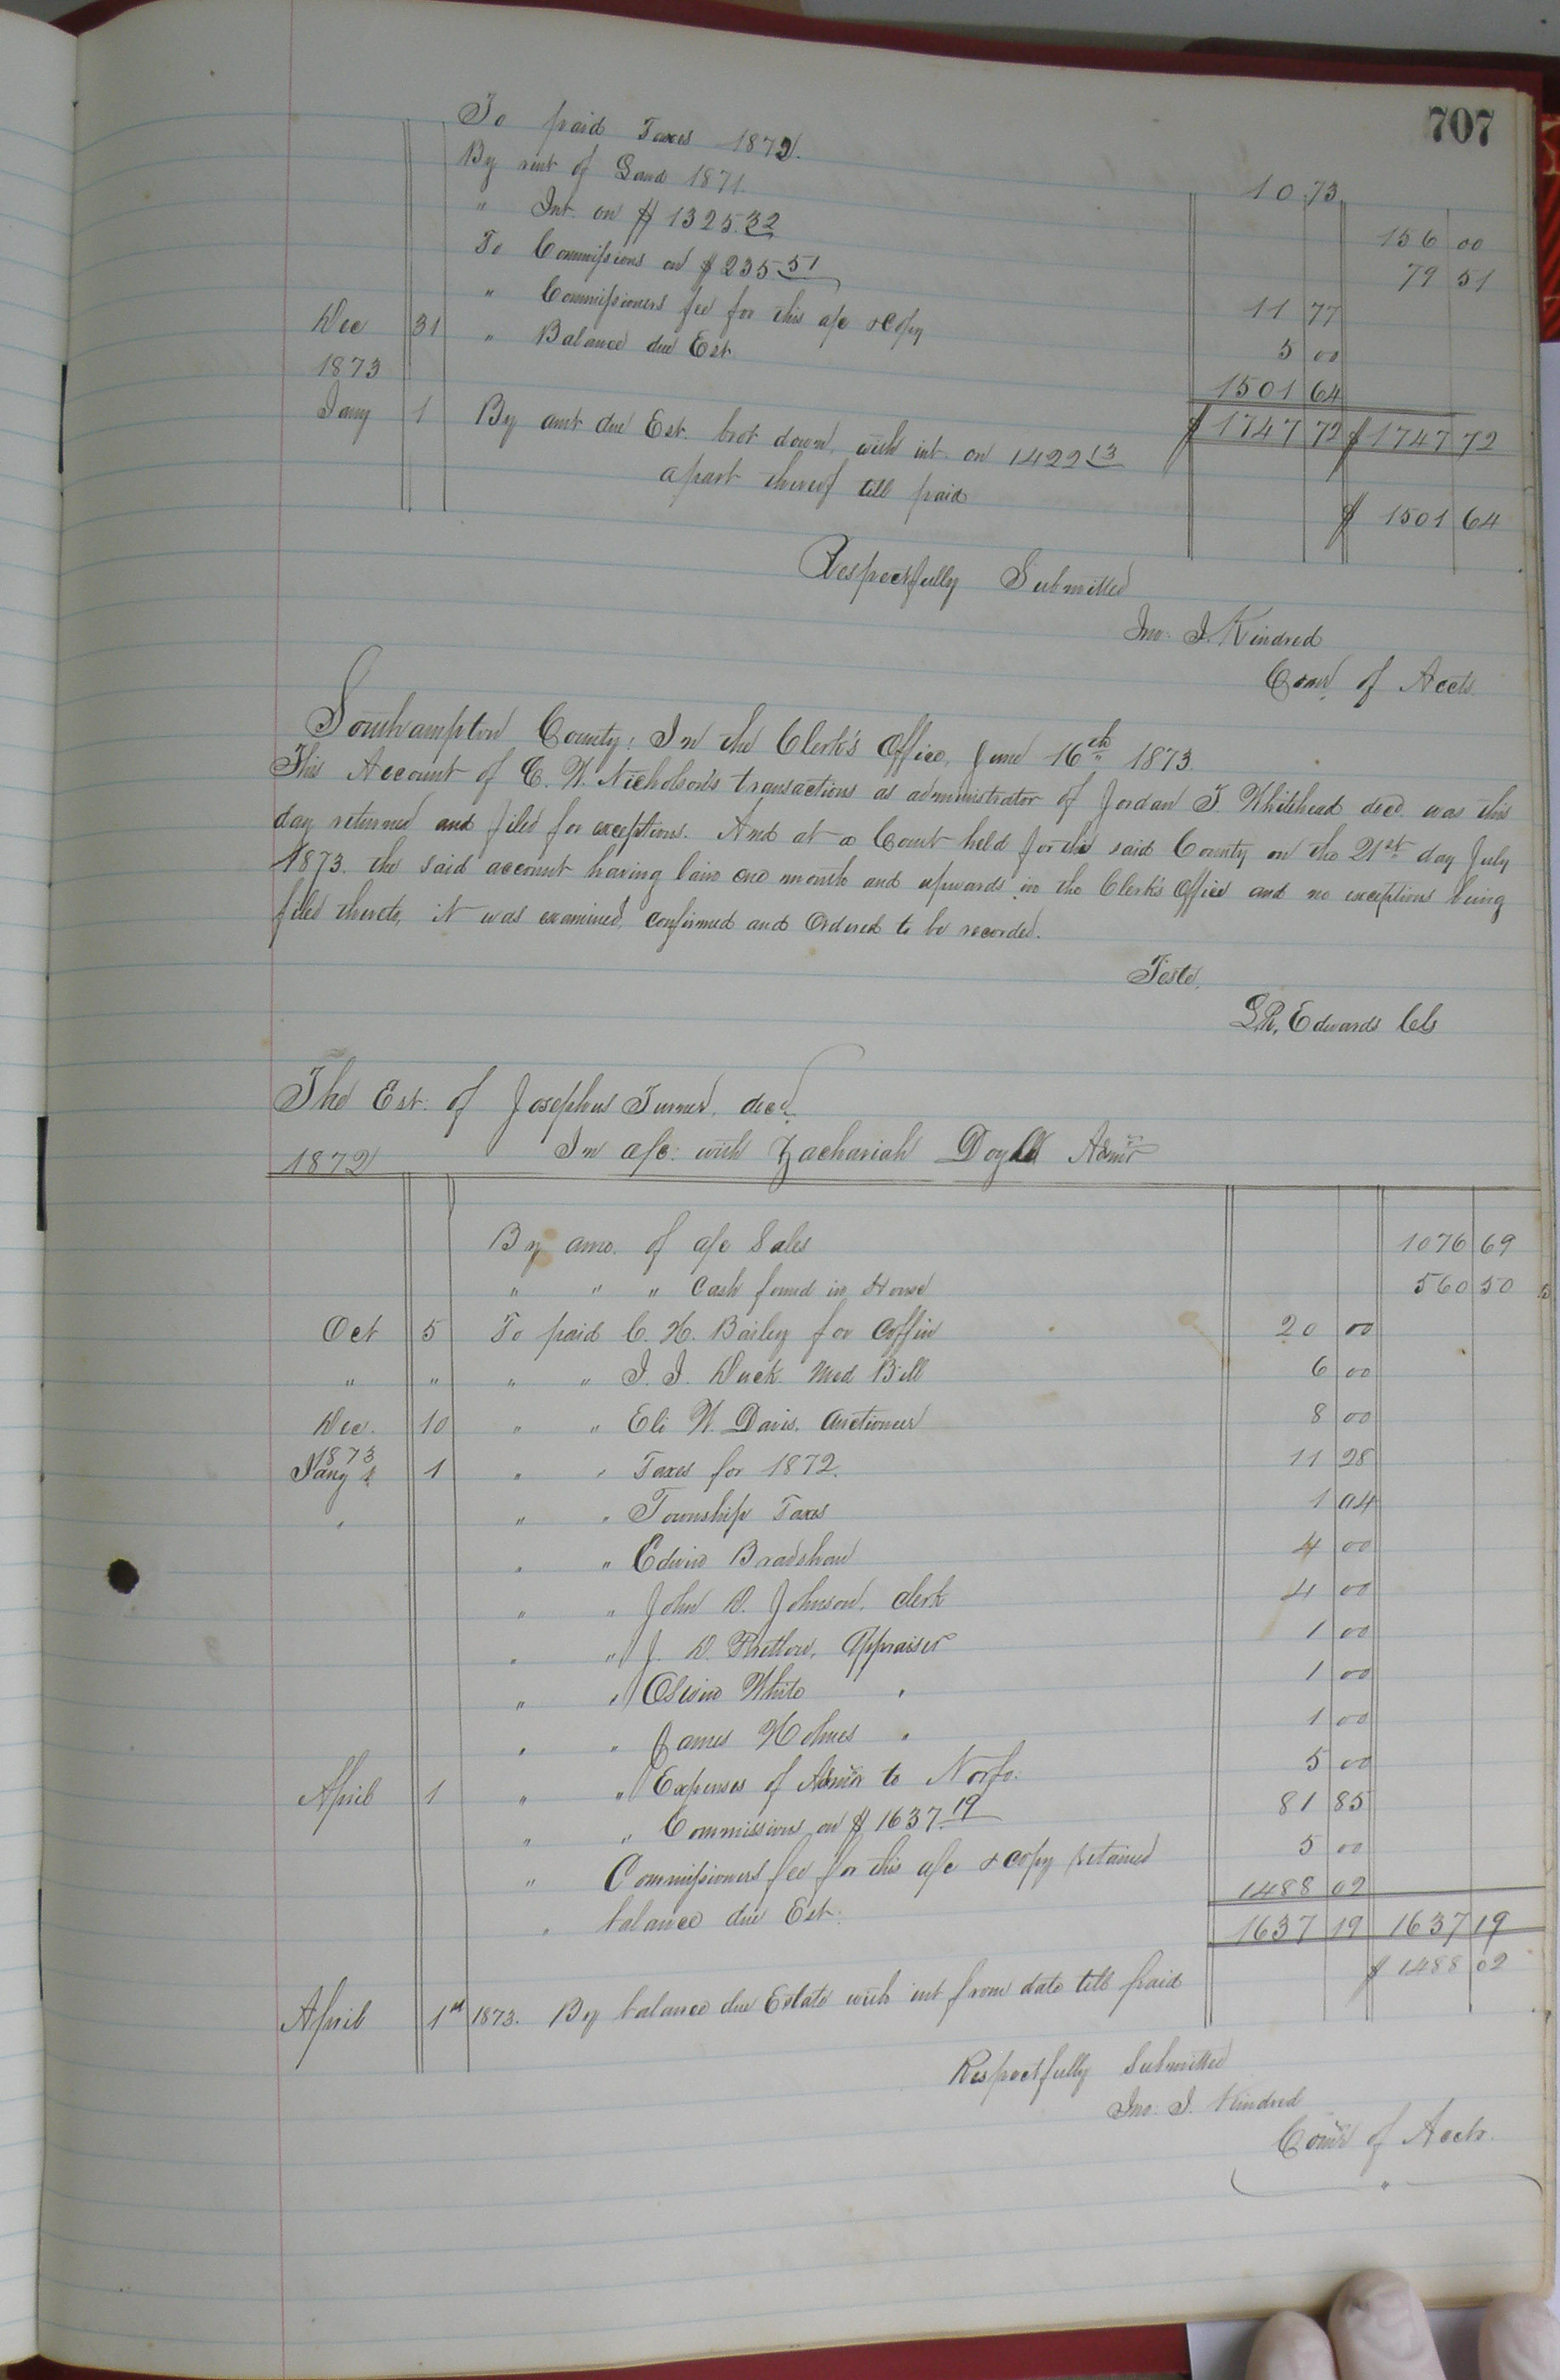 707
To paid Taxes 1872. 10 73
By rent of Land 1871. 156 00
" Int. on $1325.32 79 51
To Commissions on $235.51 11 77
" Commissioners fee for this a/c & copy 5 00
Dec 31 " Balance due Est. 1501 64
1873 $1747 72 $1747 72
Jany 1 By amt due Est. brot down, with int. on 1422.13
apart thereof till paid $1501 64
Respectfully Submitted
Jno. J. Kindred
Comr. of Accts.
Southampton County: In the Clerk's Office, June 16th 1873.
This Account of C. W. Nicholson's transactions as administrator of Jordan T. Whitehead decd. was this
day returned and filed for exceptions. And at a Court held for the said County on the 21st day July
1873. the said account having lain one month and upwards in the Clerk's Office and no exceptions being
filed thereto, it was examined, confirmed and Ordered to be recorded.
Teste,
L.R. Edwards Clk
The Est: of Josephus Turner, decd.
1872 In a/c: with Zachariah Doyle Admr
By amo. of a/c Sales 1076 69
" " " Cash found in House 560 50
Oct 5 To paid C. H. Bailey for Coffin 20 00
" " " " J. J. Duck Med Bill 6 00
Dec. 10 " " Eli W. Davis, Auctioneer 8 00
1873
Jany 1 " " Taxes for 1872. 11 28
" " " Township Taxes 1 04
" " Edwin Bradshaw 4 00
" " John D. Johnson, Clerk 4 00
" " J. D. Pretlow, Appraiser 1 00
" " White " 1 00
" " James Holmes " 1 00
April 1 " " Expenses of Admr to Norfo. 5 00
" " Commissions on $1637.19 81 85
" Commissioners fee for this a/c & copy retained 5 00
" balance due Est. 1488 02
1637 19 1637 19
April 1st 1873. By balance due Estate with int from date till paid $1488 02
Respectfully Submitted
Jno. J. Kindred
Comr of Accts.